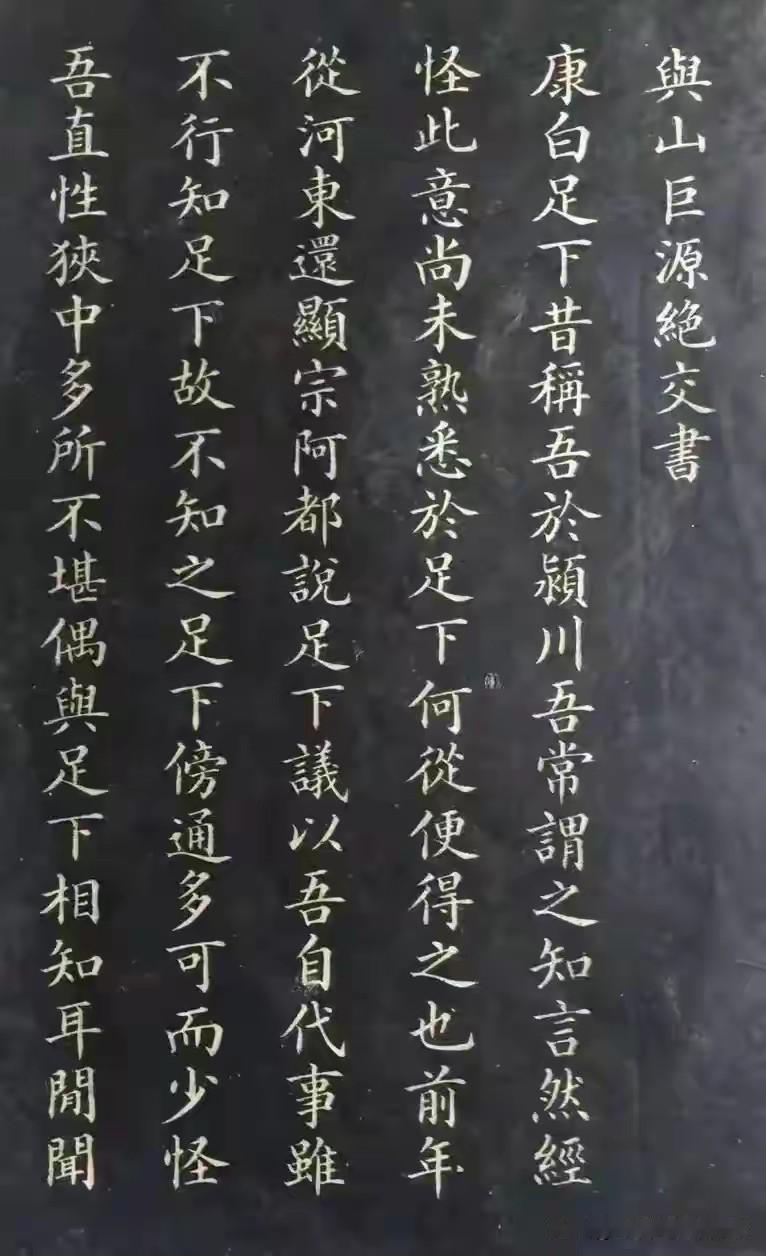 與山巨源絶交書
康白足下昔稱吾於潁川吾常謂之知言然經
怪此意尚未熟悉於足下何從便得之也前年
從河東還顯宗阿都說足下議以吾自代事雖
不行知足下故不知之足下傍通多可而少怪
吾直性狹中多所不堪偶與足下相知耳閒聞